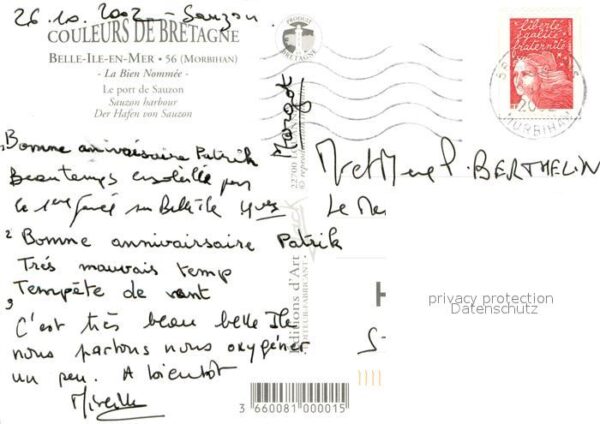 26.10.2002 - Sauzon
COULEURS DE BRETAGNE
BELLE-ILE-EN-MER • 56 (MORBIHAN)
- La Bien Nommée -
Le port de Sauzon
Sauzon harbour
Der Hafen von Sauzon
PRODUIT EN BRETAGNE
liberté
égalité
fraternité
2002
MORBIHAN
Bonne anniversaire Patrik
Beau temps ensoleillé pour
le 1er jour sur Belle ile Yves
Margot
2 Bonne annivairsaire Patrik
Très mauvais temp
Tempête de vent
3 C'est très beau belle Ile
nous partons nous oxygéner
un peu. A bientôt
Mireille
22700
© repro
Editions d'Art
EDITEUR-FABRICANT
Mr et Mme P. BERTHELIN
Le
H
S
privacy protection
Datenschutz
3 660081 000015